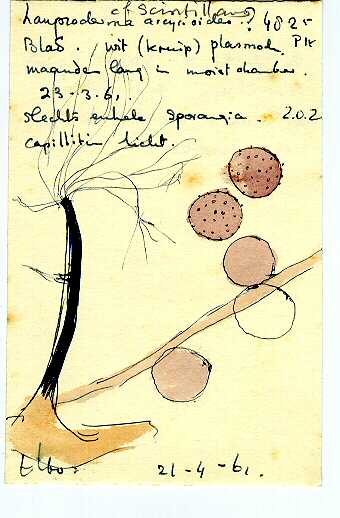 cf scintillans
Lamproderma arcyrioides ? 4825
Blad. wit (kruip) plasmod. P IX
maanden lang in moist chamber.
23-3-61
slechts enkele sporangia. 2.0.2
capillitium licht.
21-4-61.